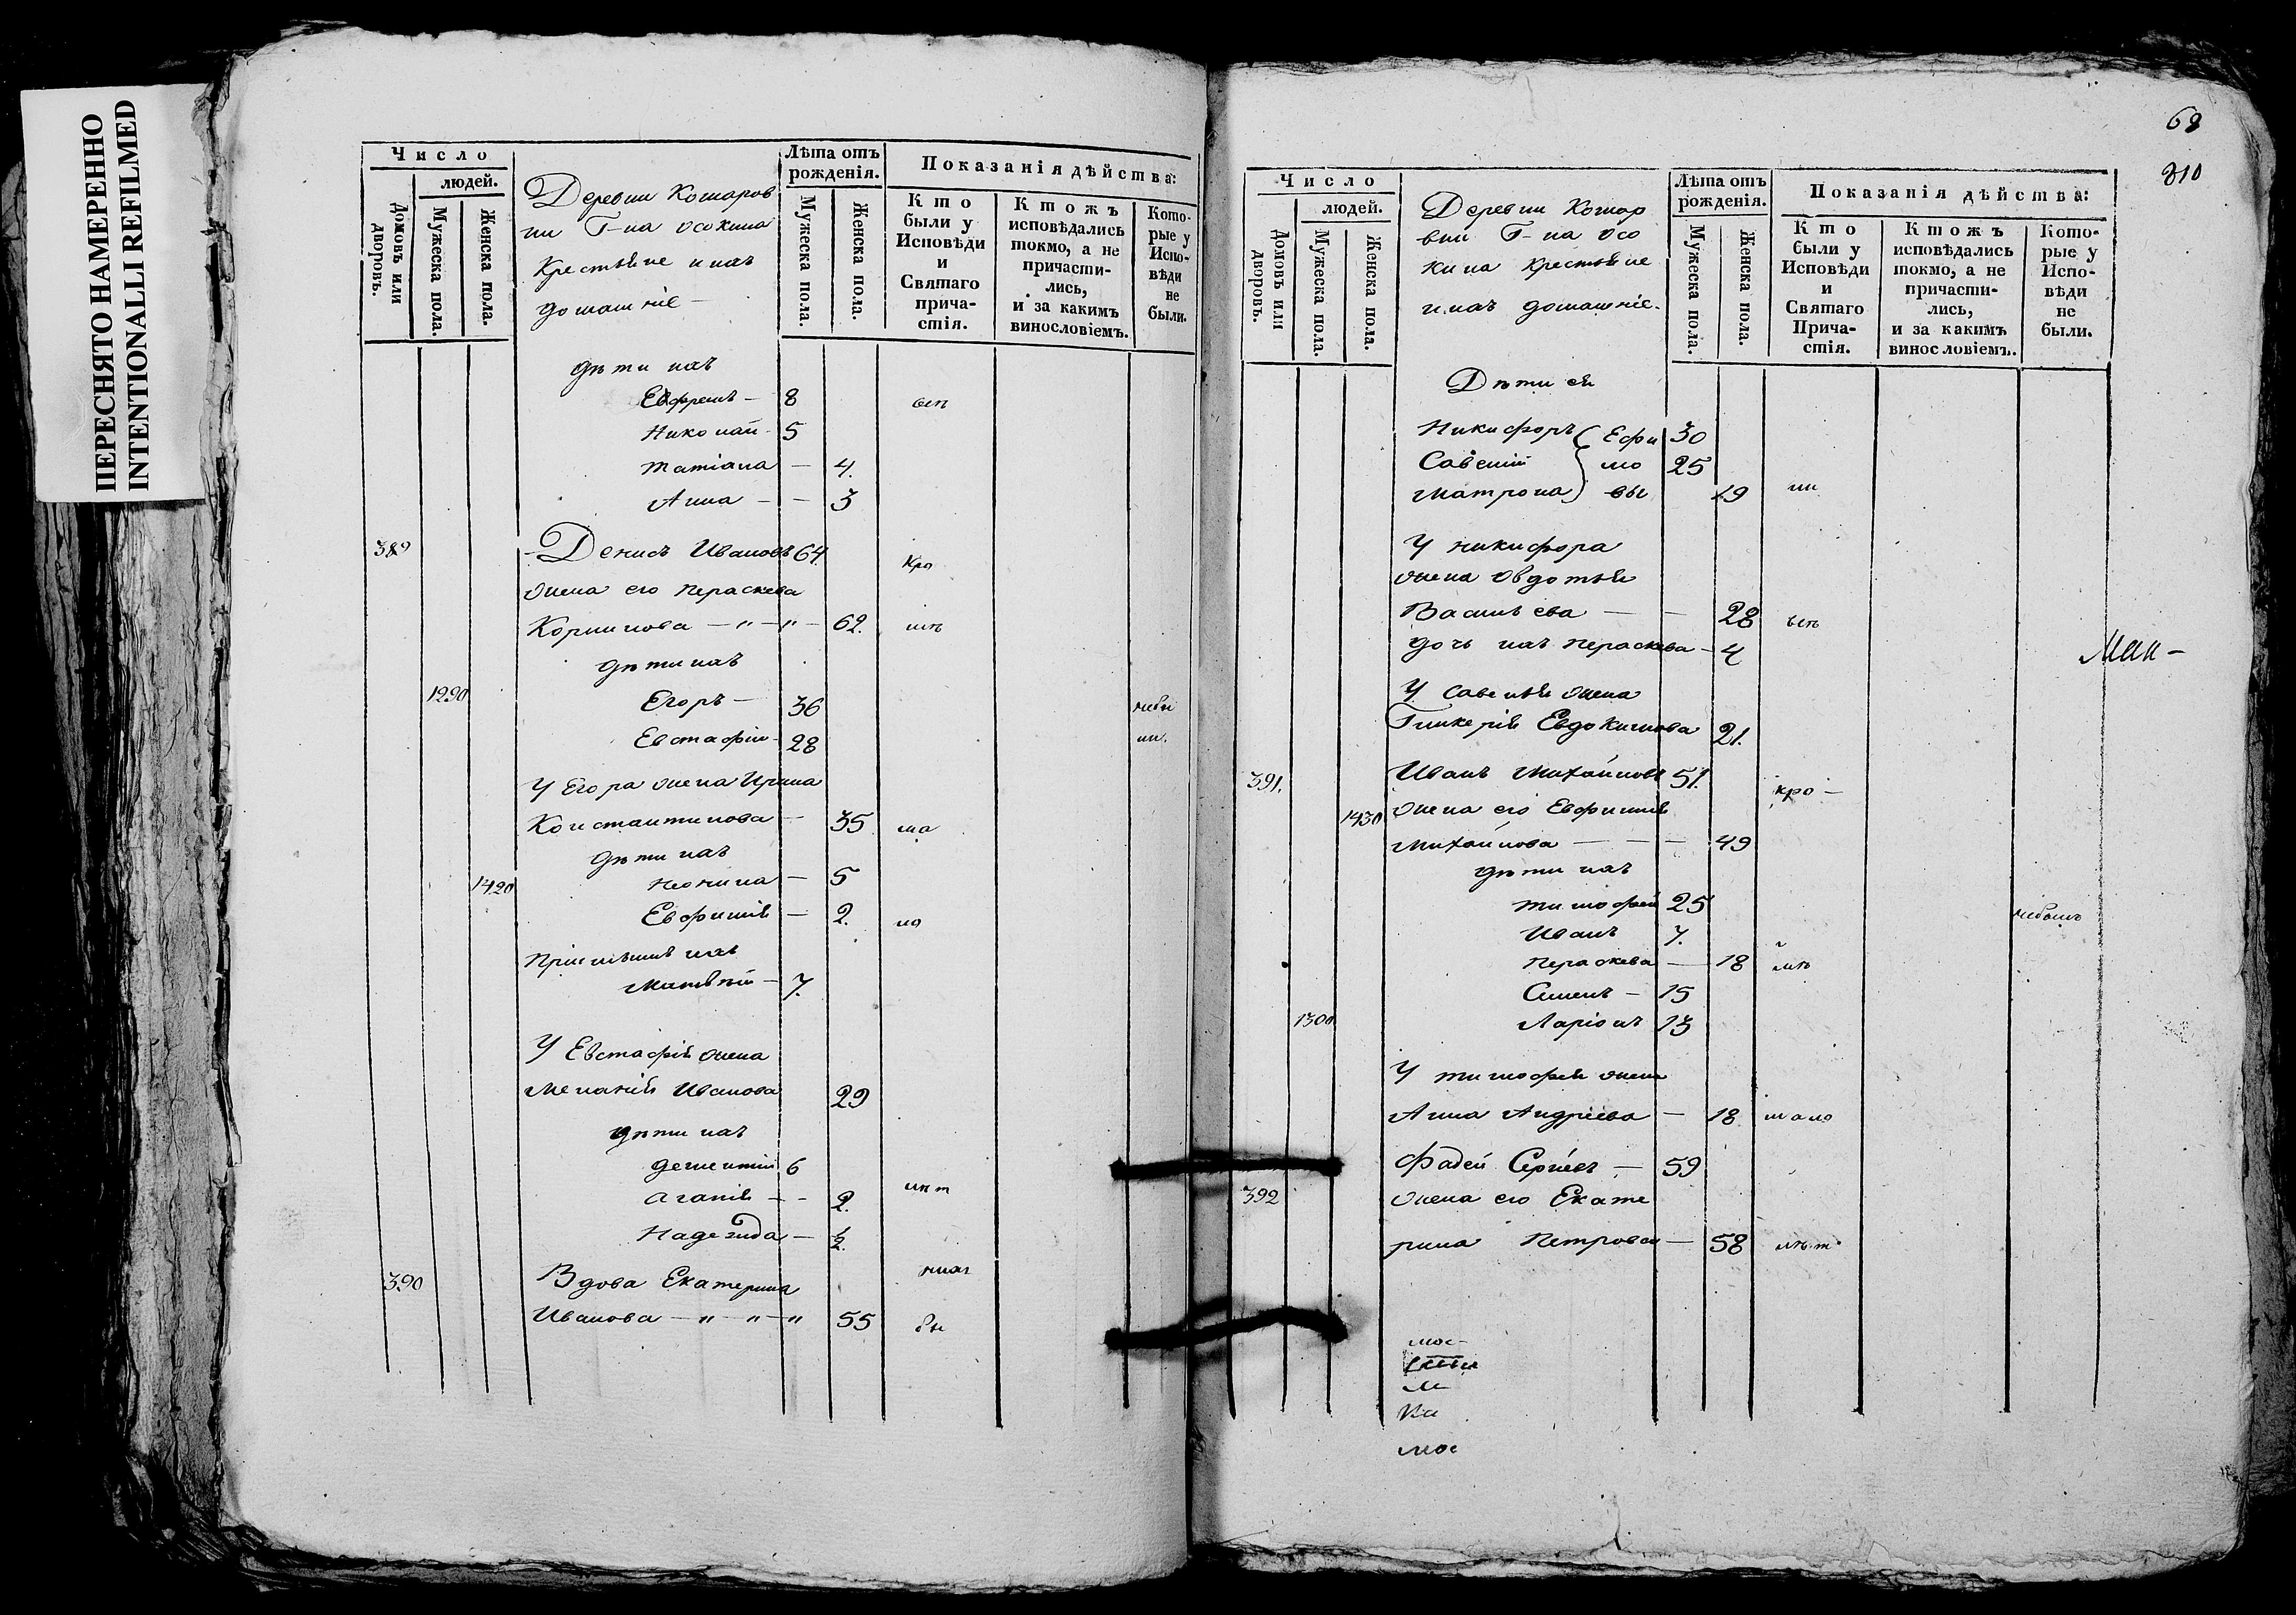 ПЕРЕСНЯТО НАМЕРЕННО
INTENTIONALLI REFILMED
Число
людей.
Домовъ или дворовъ.
Мужеска пола.
Женска пола.
Деревни Комаров
ни Г-на Осокина
Крестьяне и ихъ
домашніе
Лѣта отъ рожденія.
Мужеска пола.
Женска пола.
Показанія дѣйства:
Кто были у Исповѣди и Святаго причастія.
Ктожъ исповѣдались токмо, а не причастились, и за какимъ винословіемъ.
Которые у Исповѣди не были.
дѣти ихъ
Ефремъ — 8
Николай 5
Татіана — 4.
Анна — — 3
389 Денисъ Ивановъ 64
жена его Пераскева
Корнилова — " — " — 62.
дѣти ихъ
1290 Егоръ — 36
Евстафій 28
У Егора жена Ирина
Константинова — 35
дѣти ихъ
1420 Неонила — 5
Евфимія — 2.
Матвѣй — 7.
У Евстафія жена
Меланія Иванова 29
дѣти ихъ
Дементій 6
Агапія — — 2.
Надежда —
390 Вдова Екатерина
Иванова — " — " — " 55 бы
68
310
Число
людей.
Домовъ или дворовъ.
Мужеска пола.
Женска пола.
Деревни Комар
вни Г-на Осо
кина Крестьяне
и ихъ домашніе.
Лѣта отъ рожденія.
Мужеска пола.
Женска пола.
Показанія дѣйства:
Кто были у Исповѣди и Святаго Причастія.
Ктожъ исповѣдались токмо, а не причастились, и за какимъ винословіемъ.
Которые у Исповѣди не были.
Дѣти ея
Никифоръ Ефи 30
Савелій мо 25
Матрона вы 19 ли
У Никифора
жена Овдотья
Васильева — — 28
дочь ихъ Пераскева — 4
У Савелья жена
Гликерія Евдокимова 21.
391. Иванъ Михайловъ 51. кро —
1430 жена его Евфимія
Михайлова — — — 49
дѣти ихъ
Тимофей 25
Иванъ 7.
Пераскева — 18
Семенъ — 15
1300 Ларіонъ 13
У Тимофея жена
Анна Андреева — 18
Фадей Сергѣевъ — 59
392 жена его Екате
рина Петрова — 58